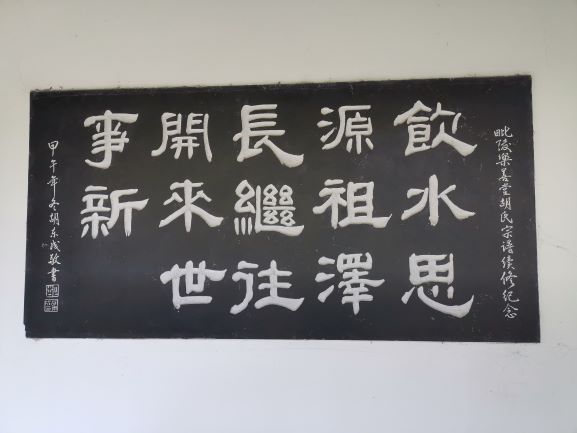 毗陵樂善堂胡氏宗谱续修纪念
飲水思
源祖澤
長繼往
開來世
事新
甲午年冬胡东成敬書